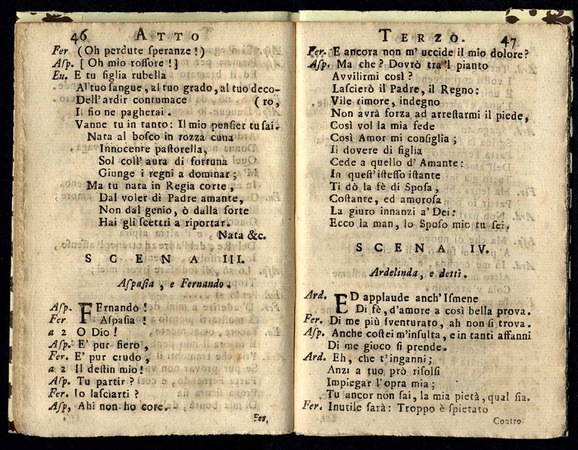 46 ATTO
Fer (Oh perdute speranze!)
Asp. [Oh mio rossore!]
Eu. E tu figlia rubella
Al tuo sangue, al tuo grado, al tuo deco-
Dell'ardir contumace (ro,
Il fio ne pagherai.
Vanne tu in tanto: Il mio pensier tu sai.
Nata al bosco in rozza cuna
Innocente pastorella,
Sol coll'aura di fortuna
Giunge i regni a dominar;
Ma tu nata in Regia corte,
Dal voler di Padre amante,
Non dal genio, ò dalla sorte
Hai gli scettri a riportar.
Nata &c.
SCENA III.
Aspasia, e Fernando.
Asp. FErnando!
Fer Aspasia!
a 2 O Dio!
Asp. E' pur fiero,
Fer. E' pur crudo,
a 2 Il destin mio!
Asp. Tu partir?
Fer. Io lasciarti?
Asp, Ahi non ho core.
Fer.
TERZO. 47
Fer. E ancora non m'uccide il mio dolore?
Asp. Ma che? Dovrò tra'l pianto
Avvilirmi così?
Lascierò il Padre, il Regno:
Vile timore, indegno
Non avrà forza ad arrestarmi il piede,
Così vol la mia fede
Così Amor mi consiglia;
Il dovere di figlia
Cede a quello d'Amante:
In quest'istesso istante
Ti dò la fè di Sposa,
Costante, ed amorosa
La giuro innanzi a' Dei:
Ecco la man, lo Sposo mio tu sei.
SCENA IV.
Ardelinda, e detti.
Ard. ED applaude anch'Ismene
Di fè, d'amore a così bella prova.
Fer. Di me più sventurato, ah non si trova.
Asp. Anche costei m'insulta, e in tanti affanni
Di me gioco si prende.
Ard. Eh, che t'inganni;
Anzi a tuo prò risolsi
Impiegar l'opra mia;
Tu ancor non sai, la mia pietà, qual sia.
Fer. Inutile sarà: Troppo è spietato
Contro